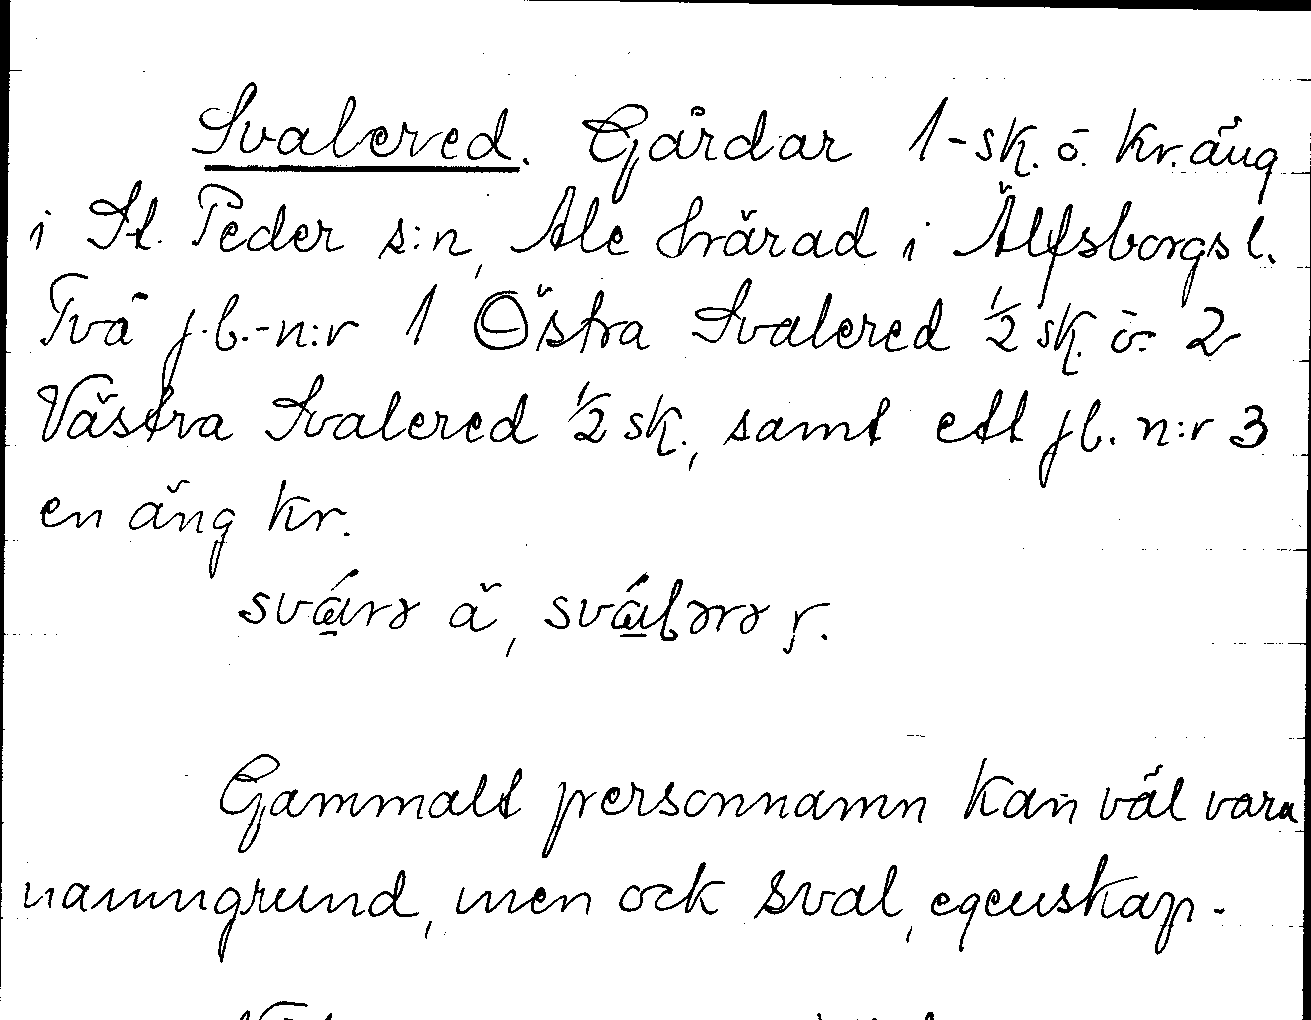 Svalered. Gårdar 1-sk. o. kr.äng
i St. Peder s:n, Ale härad i Älfsborgs l.
Två j.b.-n:r 1 Östra Svalered ½ sk. o. 2
Västra Svalered ½ sk., samt ett jb. n:r 3
en äng kr.
ä,
Gammalt personnamn kan väl vara
namngrund, men ock sval, egenskap.